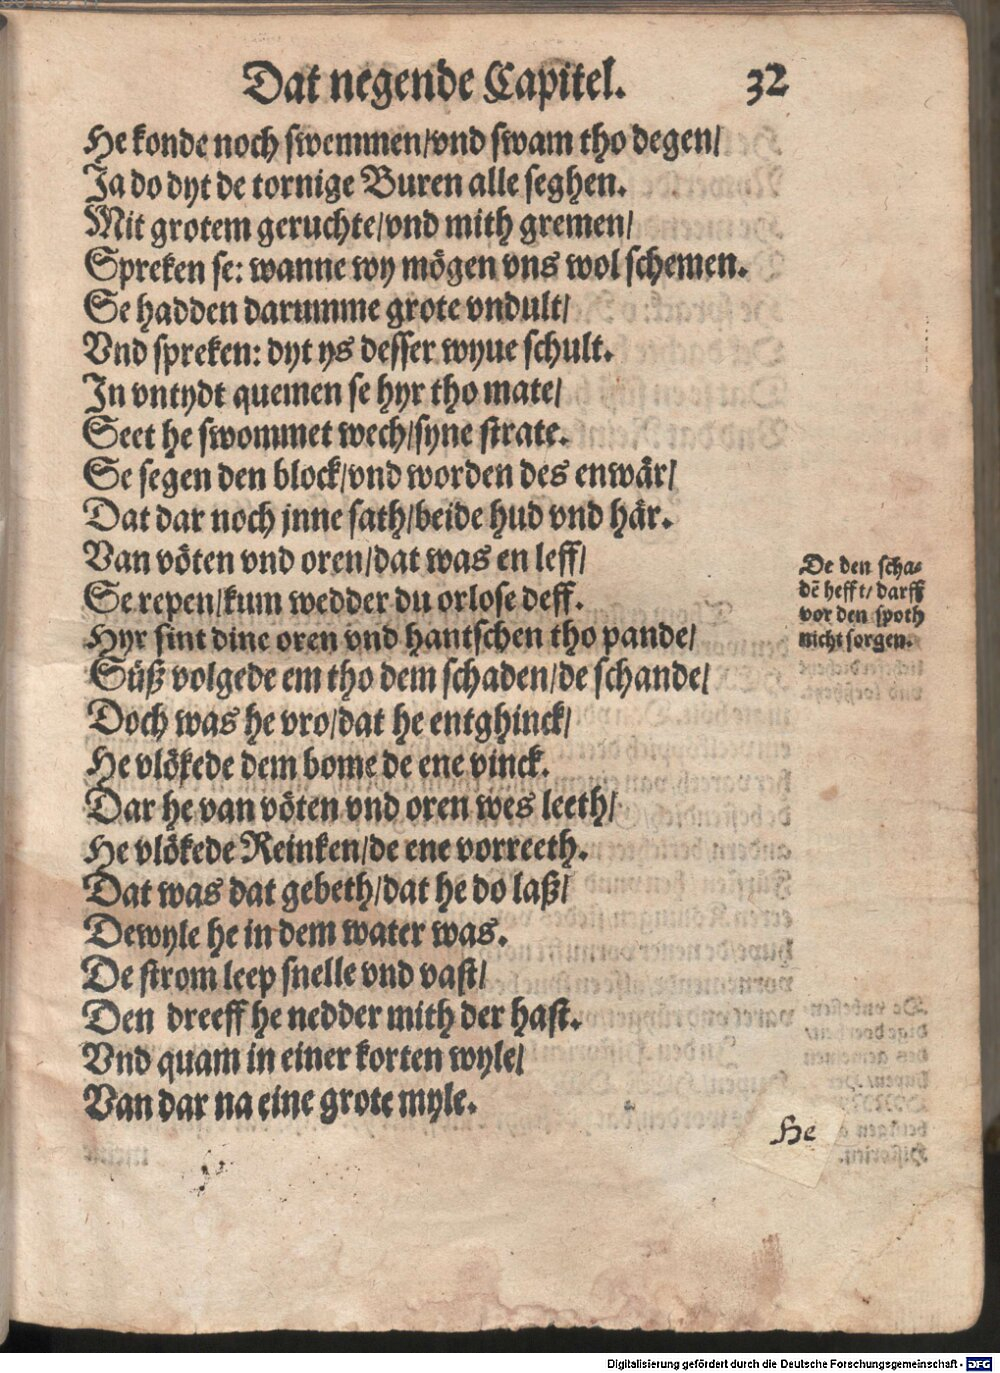 Dat negende Capitel. 32
He konde noch swemmen/vnd swam tho degen/
Ja do dyt de tornige Buren alle seghen.
Mit grotem geruchte/vnd mith gremen/
Spreken se: wanne wy mögen vns wol schemen.
Se hadden darumme grote vndult/
Vnd spreken: dyt ys desser wyue schult.
In vntydt quemen se hyr tho mate/
Seet he swommet wech/syne strate.
Se segen den block/vnd worden des enwär/
Dat dar noch jnne sath/beide hud vnd här.
Van vöten vnd oren/dat was en leff/
Se repen/kum wedder du orlose deff.
Hyr sint dine oren vnd hantschen tho pande/
Süß volgede em tho dem schaden/de schande/
Doch was he vro/dat he entghinck/
He vlökede dem bome de ene vinck.
Dar he van vöten vnd oren wes leeth/
He vlökede Reinken/de ene vorreeth.
Dat was dat gebeth/dat he do laß/
Dewyle he in dem water was.
De strom leep snelle vnd vast/
Den dreeff he nedder mith der hast.
Vnd quam in einer korten wyle/
Van dar na eine grote myle.
De den scha⸗
dẽ hefft/darff
vor den spoth
nicht sorgen.
He
Digitalisierung gefördert durch die Deutsche Forschungsgemeinschaft - DFG